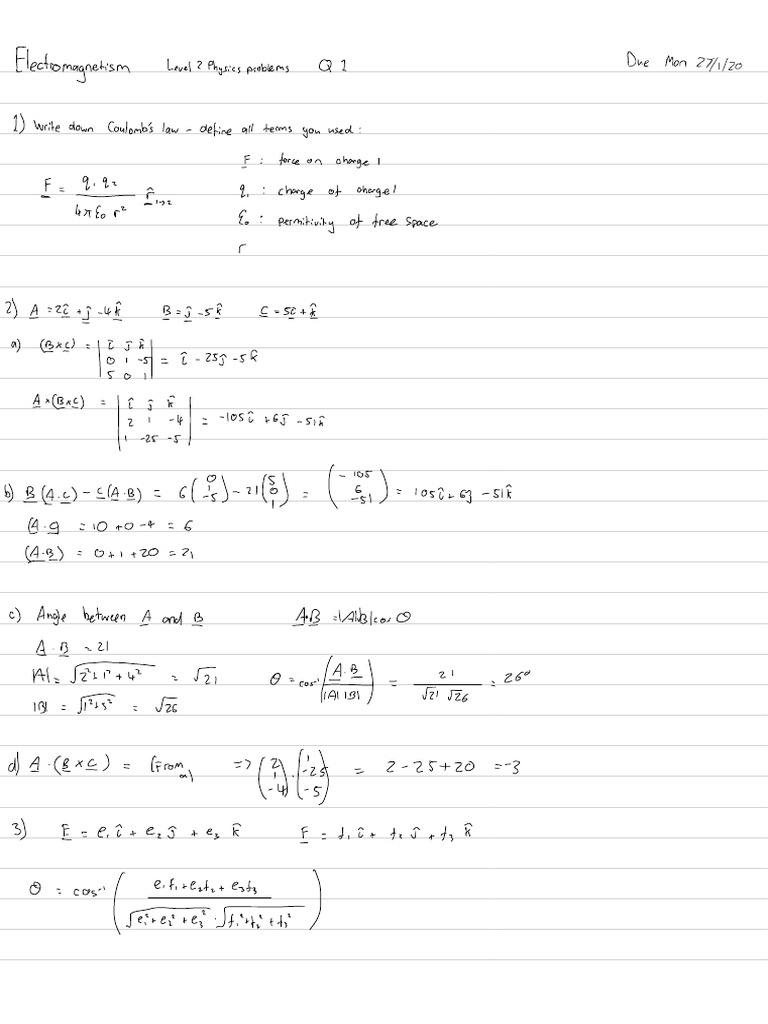 Electromagnetism Level 2 Physics problems Q1 Due Mon 27/1/20
1) Write down Coulomb's law - define all terms you used:
F = q₁q₂ / 4πε₀ r² r̂₁→₂
F : force on charge 1
q₁ : charge of charge 1
ε₀ : permitivity of free space
r
2) A = 2î + ĵ - 4k̂ B = ĵ - 5k̂ C = 5î + k̂
a) (B×C) = | î ĵ k̂ |
| 0 1 -5 | = î - 25ĵ - 5k̂
| 5 0 1 |
A×(B×C) = | î ĵ k̂ |
| 2 1 -4 | = -105î + 6ĵ - 51k̂
| 1 -25 -5 |
b) B(A.C) - C(A.B) = 6(0 1 -5) - 21(5 0 1) = (-105 6 -51) = 105î + 6ĵ - 51k̂
(A.C) = 10 + 0 - 4 = 6
(A.B) = 0 + 1 + 20 = 21
c) Angle between A and B A.B = |A||B|cos θ
A.B = 21
|A| = √(2² + 1² + 4²) = √21
θ = cos⁻¹(A.B / |A||B|) = 21 / √21 √26 = 26°
|B| = √(1² + 5²) = √26
d) A.(B×C) = (From a) => (2 1 -4).(1 -25 -5) = 2 - 25 + 20 = -3
3) E = e₁î + e₂ĵ + e₃k̂ F = f₁î + f₂ĵ + f₃k̂
θ = cos⁻¹( e₁f₁ + e₂f₂ + e₃f₃ / √(e₁² + e₂² + e₃²) . √(f₁² + f₂² + f₃²) )